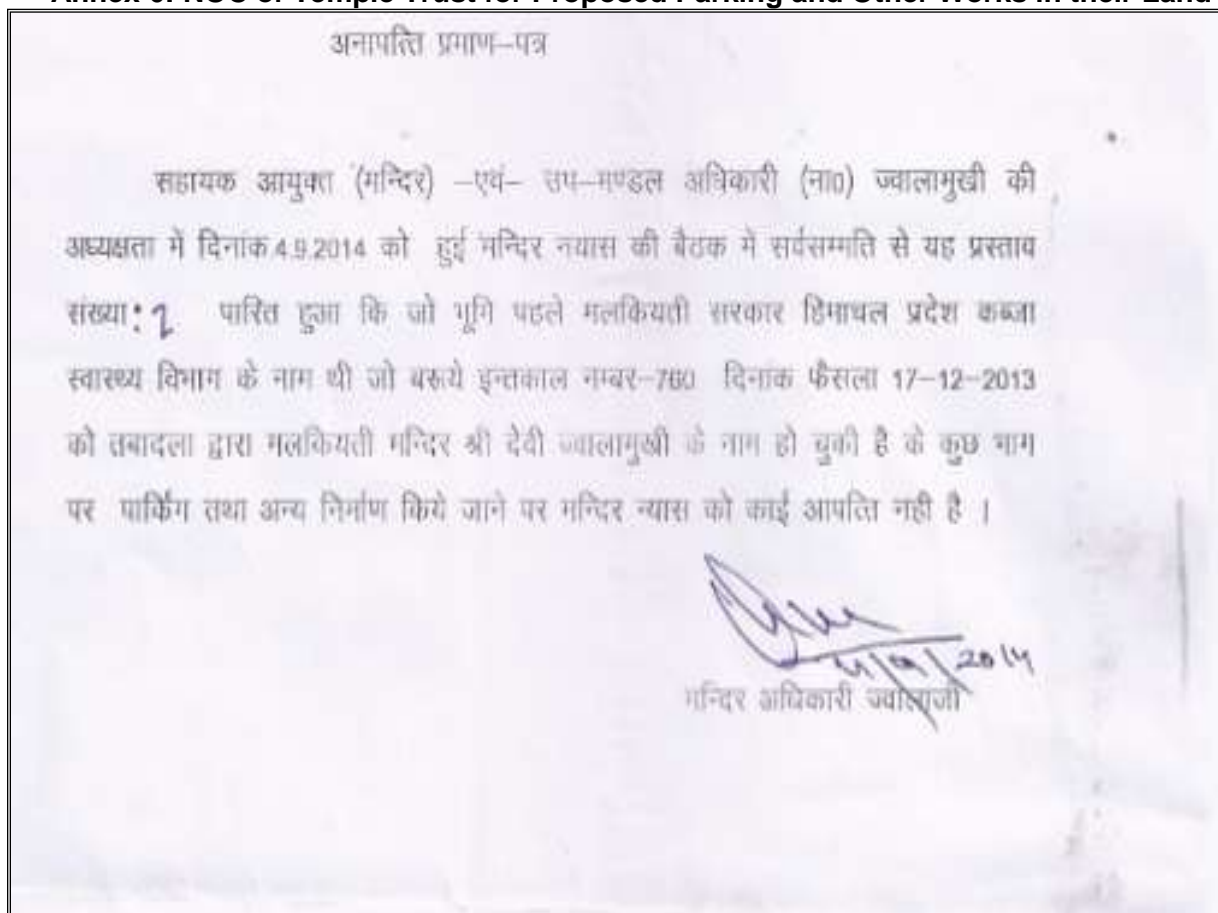 Annex 6: NOC of Temple Trust for Proposed Parking and Other Works in their Land
अनापत्ति प्रमाण–पत्र
सहायक आयुक्त (मन्दिर) –एवं– उप–मण्डल अधिकारी (ना0) ज्वालामुखी की
अध्यक्षता में दिनांक 4.9.2014 को हुई मन्दिर नयास की बैठक में सर्वसम्मति से यह प्रस्ताव
संख्या: 2 पारित हुआ कि जो भूमि पहले मलकियती सरकार हिमाचल प्रदेश कब्जा
स्वास्थ्य विभाग के नाम थी जो बरूये इन्तकाल नम्बर–760 दिनांक फैसला 17–12–2013
को तबादला द्वारा मलकियती मन्दिर श्री देवी ज्वालामुखी के नाम हो चुकी है के कुछ भाग
पर पार्किंग तथा अन्य निर्माण किये जाने पर मन्दिर न्यास को काई आपत्ति नही है ।
4/9/2014
मन्दिर अधिकारी ज्वालाजी